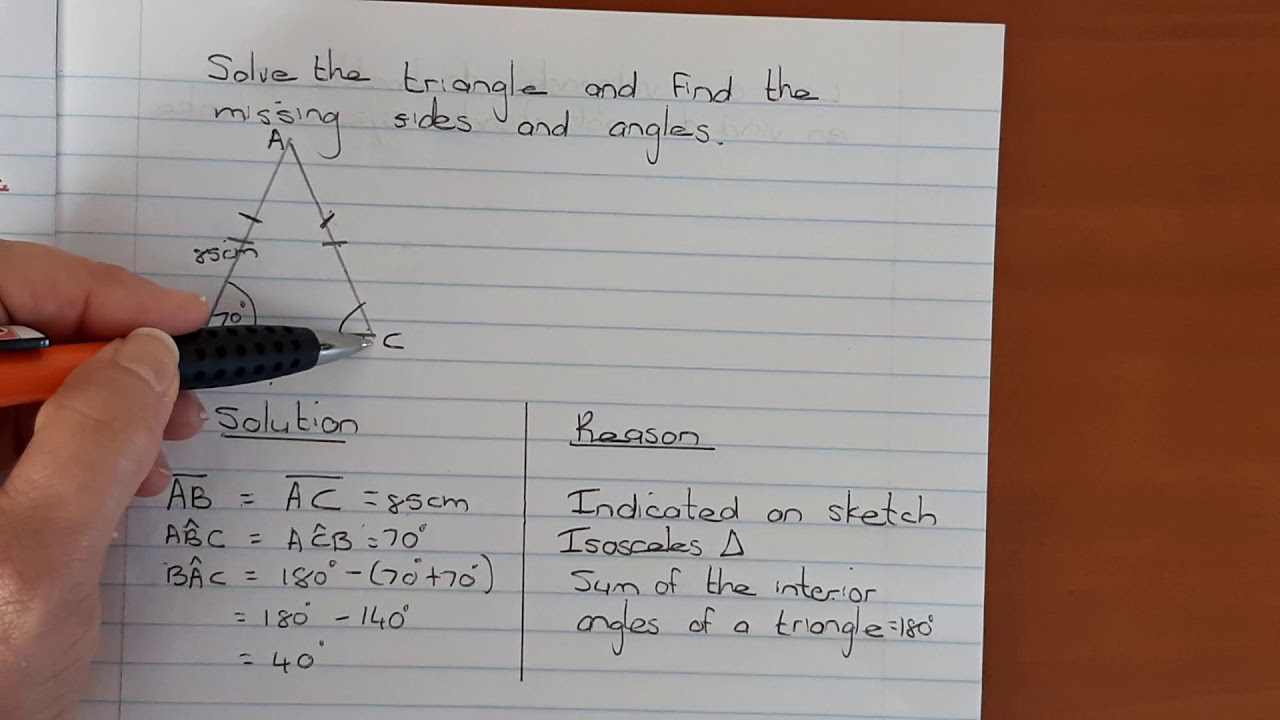 Solve the triangle and find the
missing sides and angles.
A
85cm
70°
C
Solution
Reason
AB = AC = 85cm
Indicated on sketch
AB̂C = AĈB = 70°
Isosceles Δ
BÂC = 180° - (70° + 70°)
Sum of the interior
= 180° - 140°
angles of a triangle = 180°
= 40°